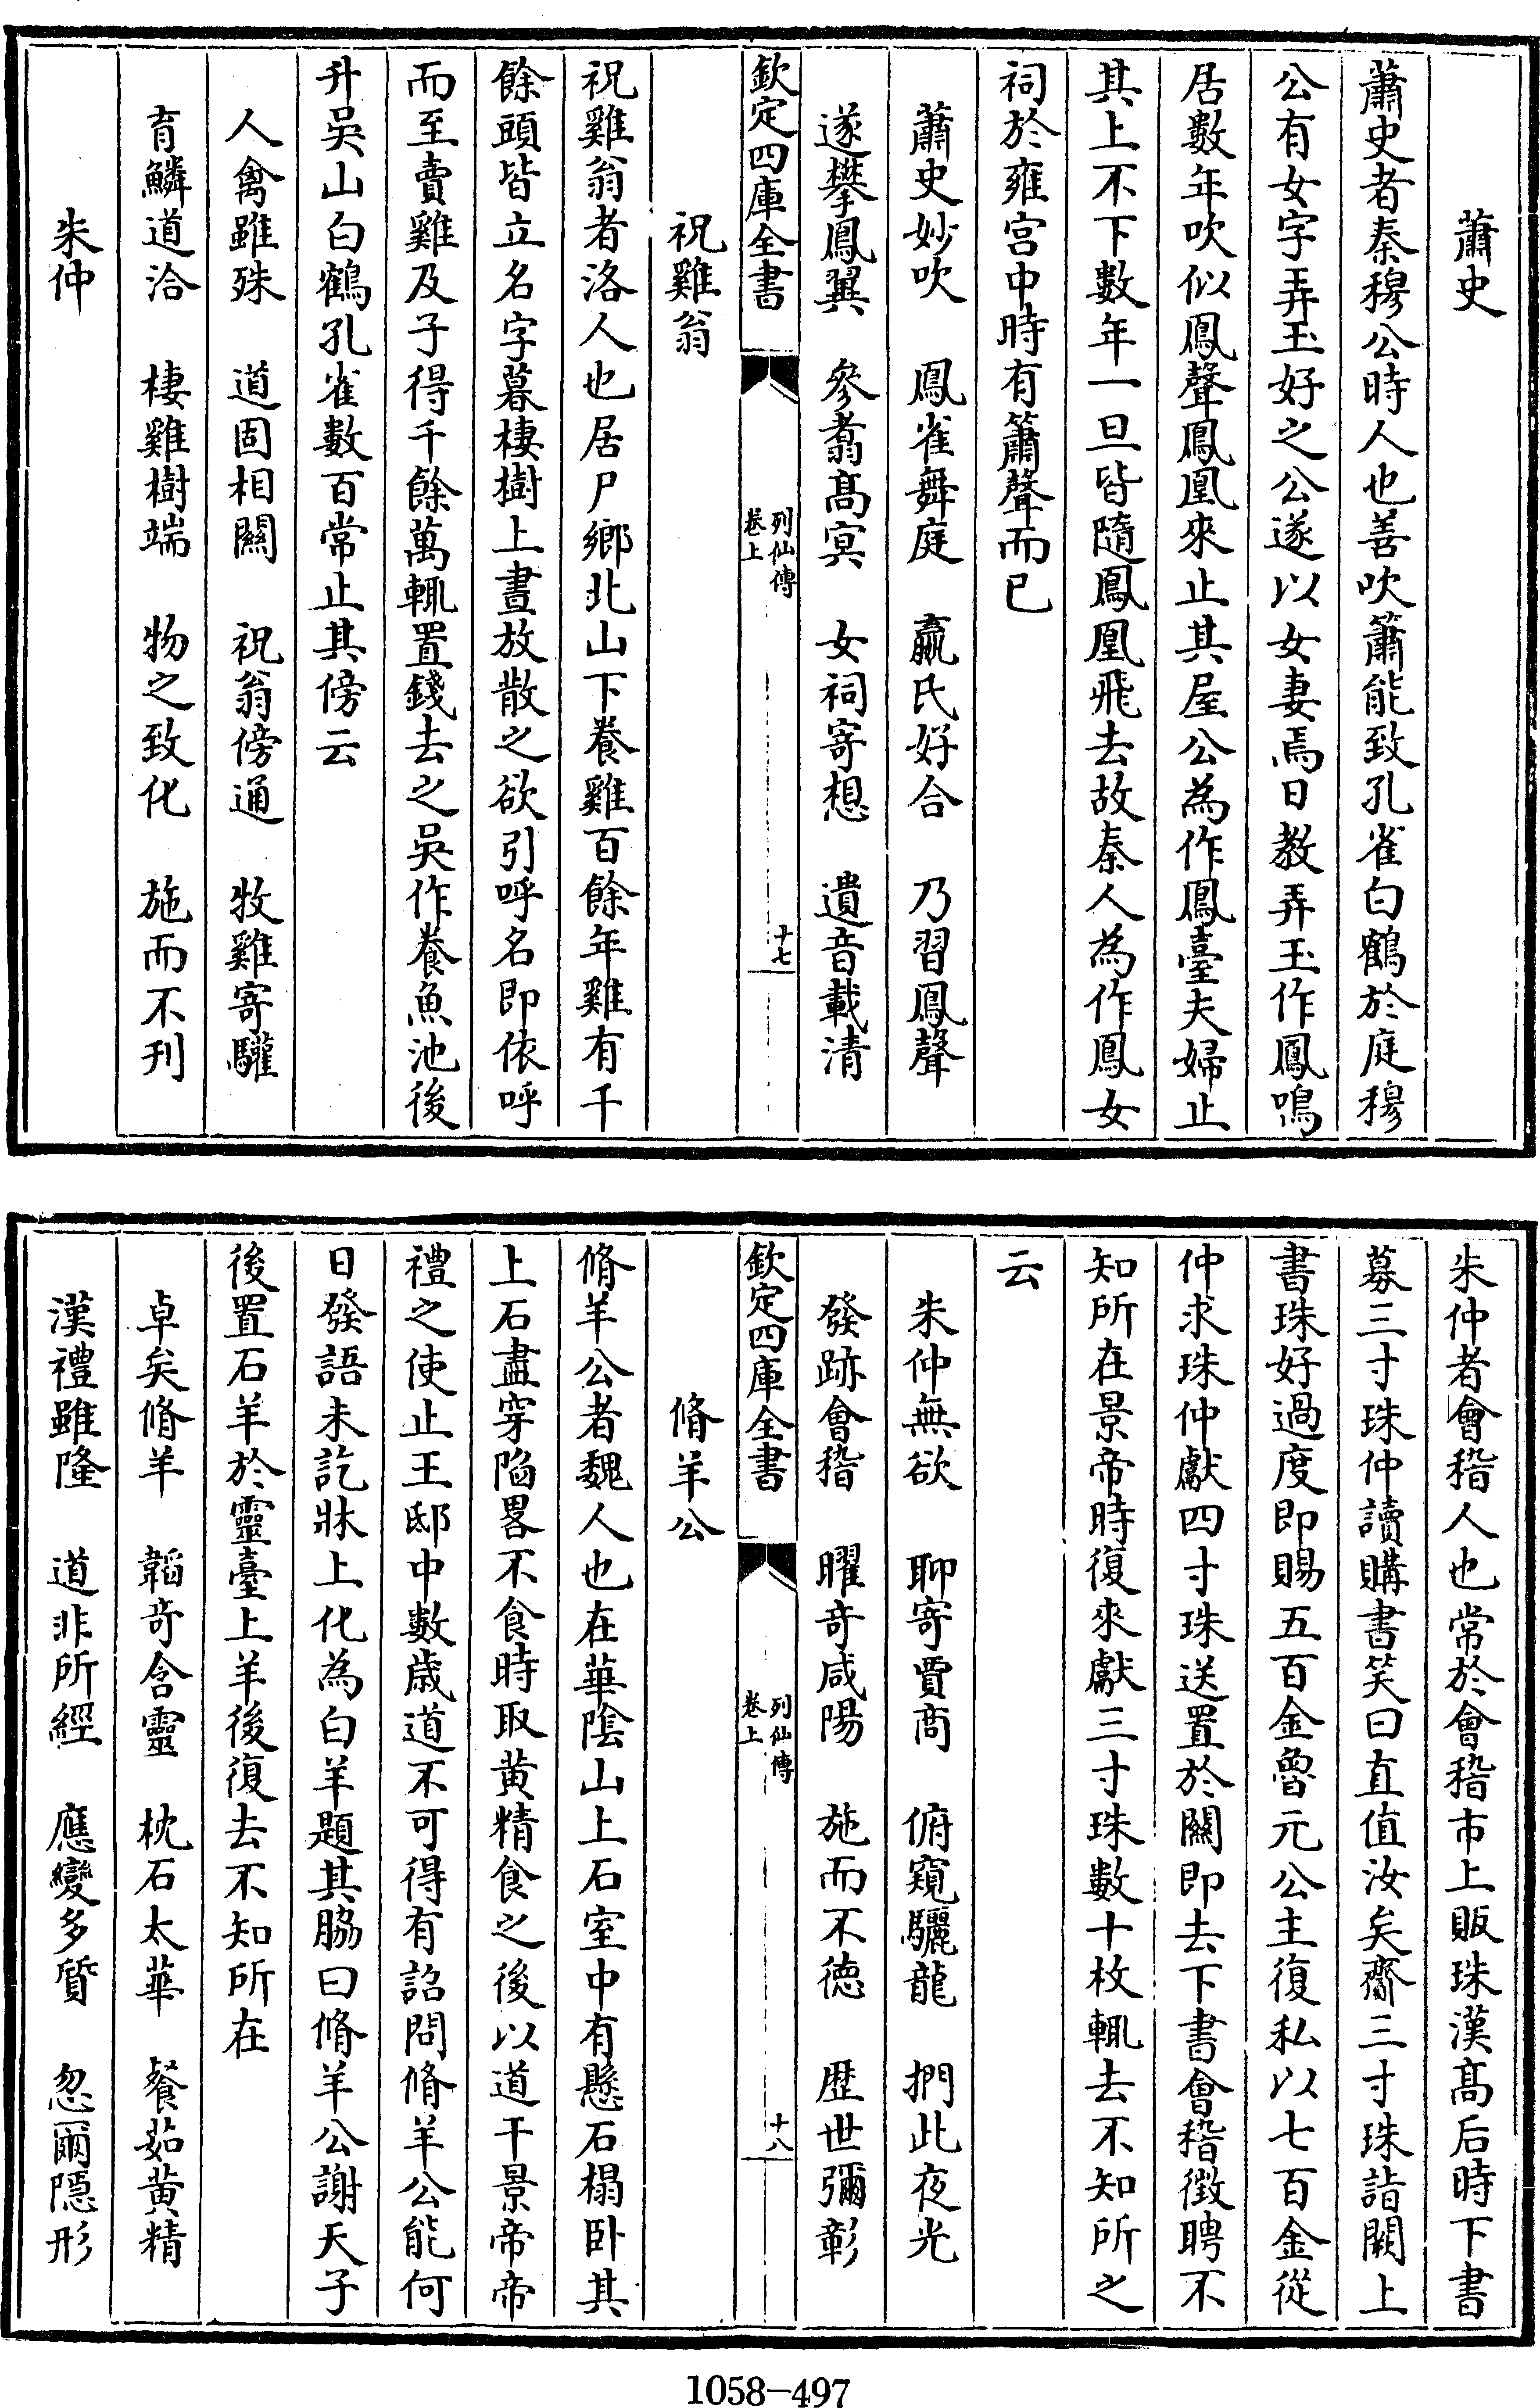 蕭史
蕭史者秦穆公時人也善吹簫能致孔雀白鶴於庭穆
公有女字弄玉好之公遂以女妻焉日教弄玉作鳳鳴
居數年吹似鳳聲鳳凰來止其屋公為作鳳臺夫婦止
其上不下數年一旦皆隨鳳凰飛去故秦人為作鳳女
祠於雍宫中時有簫聲而已
蕭史妙吹　鳳雀舞庭　嬴氏好合　乃習鳳聲
遂攀鳳翼　參翥髙冥　女祠寄想　遺音載清
欽定四庫全書
列仙傳
卷上
十七
祝雞翁
祝雞翁者洛人也居尸鄉北山下養雞百餘年雞有千
餘頭皆立名字暮棲樹上晝放散之欲引呼名即依呼
而至賣雞及子得千餘萬輒置錢去之吳作養魚池後
升吳山白鶴孔雀數百常止其傍云
人禽雖殊　道固相關　祝翁傍通　牧雞寄驩
育鱗道洽　棲雞樹端　物之致化　施而不刋
朱仲
朱仲者會稽人也常於會稽市上販珠漢髙后時下書
募三寸珠仲讀購書笑曰直值汝矣齎三寸珠詣闕上
書珠好過度即賜五百金魯元公主復私以七百金從
仲求珠仲獻四寸珠送置於闕即去下書會稽徵聘不
知所在景帝時復來獻三寸珠數十枚輒去不知所之
云
朱仲無欲　聊寄賈商　俯窺驪龍　捫此夜光
發跡會稽　曜奇咸陽　施而不德　歴世彌彰
欽定四庫全書
列仙傳
卷上
十八
脩羊公
脩羊公者魏人也在華隂山上石室中有懸石榻卧其
上石盡穿陷畧不食時取黄精食之後以道干景帝帝
禮之使止王邸中數歲道不可得有詔問脩羊公能何
日發語未訖牀上化為白羊題其脇曰脩羊公謝天子
後置石羊於靈臺上羊後復去不知所在
卓矣脩羊　韜奇含靈　枕石太華　餐茹黄精
漢禮雖隆　道非所經　應變多質　忽爾隠形
1058-497